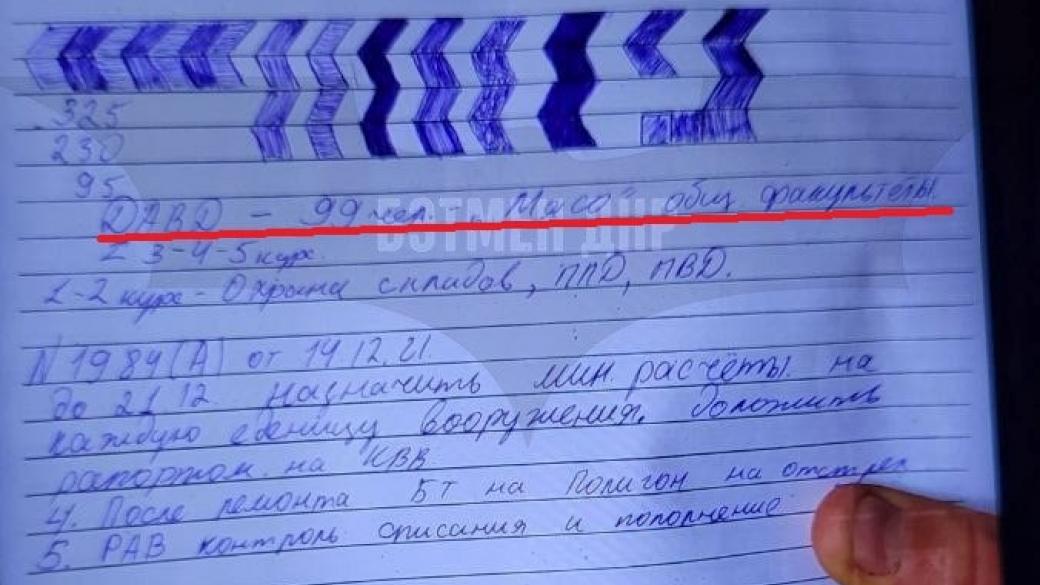 325
230
95
DABD - 99 чел. - "Мясо" общ. факультеты.
3-4-5 курс.
1-2 курс - Охрана складов, ППД, ПВД.
БОТМЕН ДНР
N 1984(А) от 14.12.21.
до 21.12. Назначить мин. расчёты на
каждую единицу вооружения. Доложить
рапортом на КВВ
4. После ремонта БТ на Полигон на отстрел
5. РАВ контроль списания и пополнение